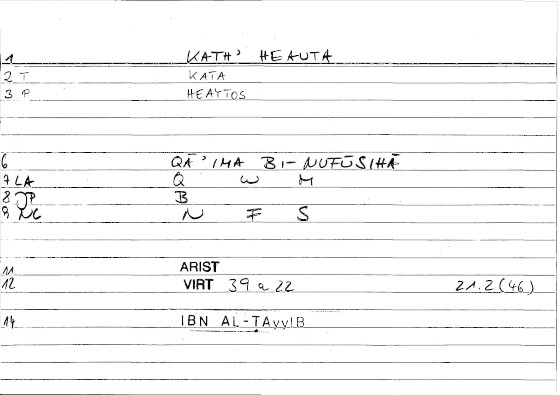 1 KATH' HEAUTA
2 T KATA
3 P HEAYTOS
6 QĀ'IMA BI-NUFŪSIHĀ
7 LA Q W M
8 JP B
9 NC N F S
11 ARIST
12 VIRT 39 a 22 21.2 (46)
14 IBN AL-ṬAyyIB